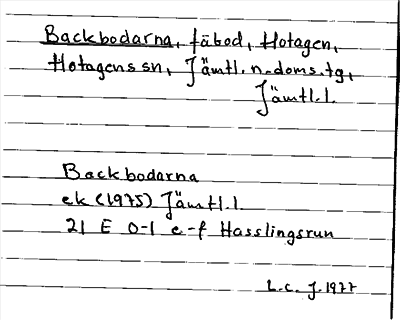 Backbodarna, fäbod, Hotagen,
Hotagens sn, Jämtl. n. doms. tg,
Jämtl. l.
Backbodarna
ek (1975) Jämtl. l.
21 E 0-1 e-f Hasslingsrun
L.C. J. 1977